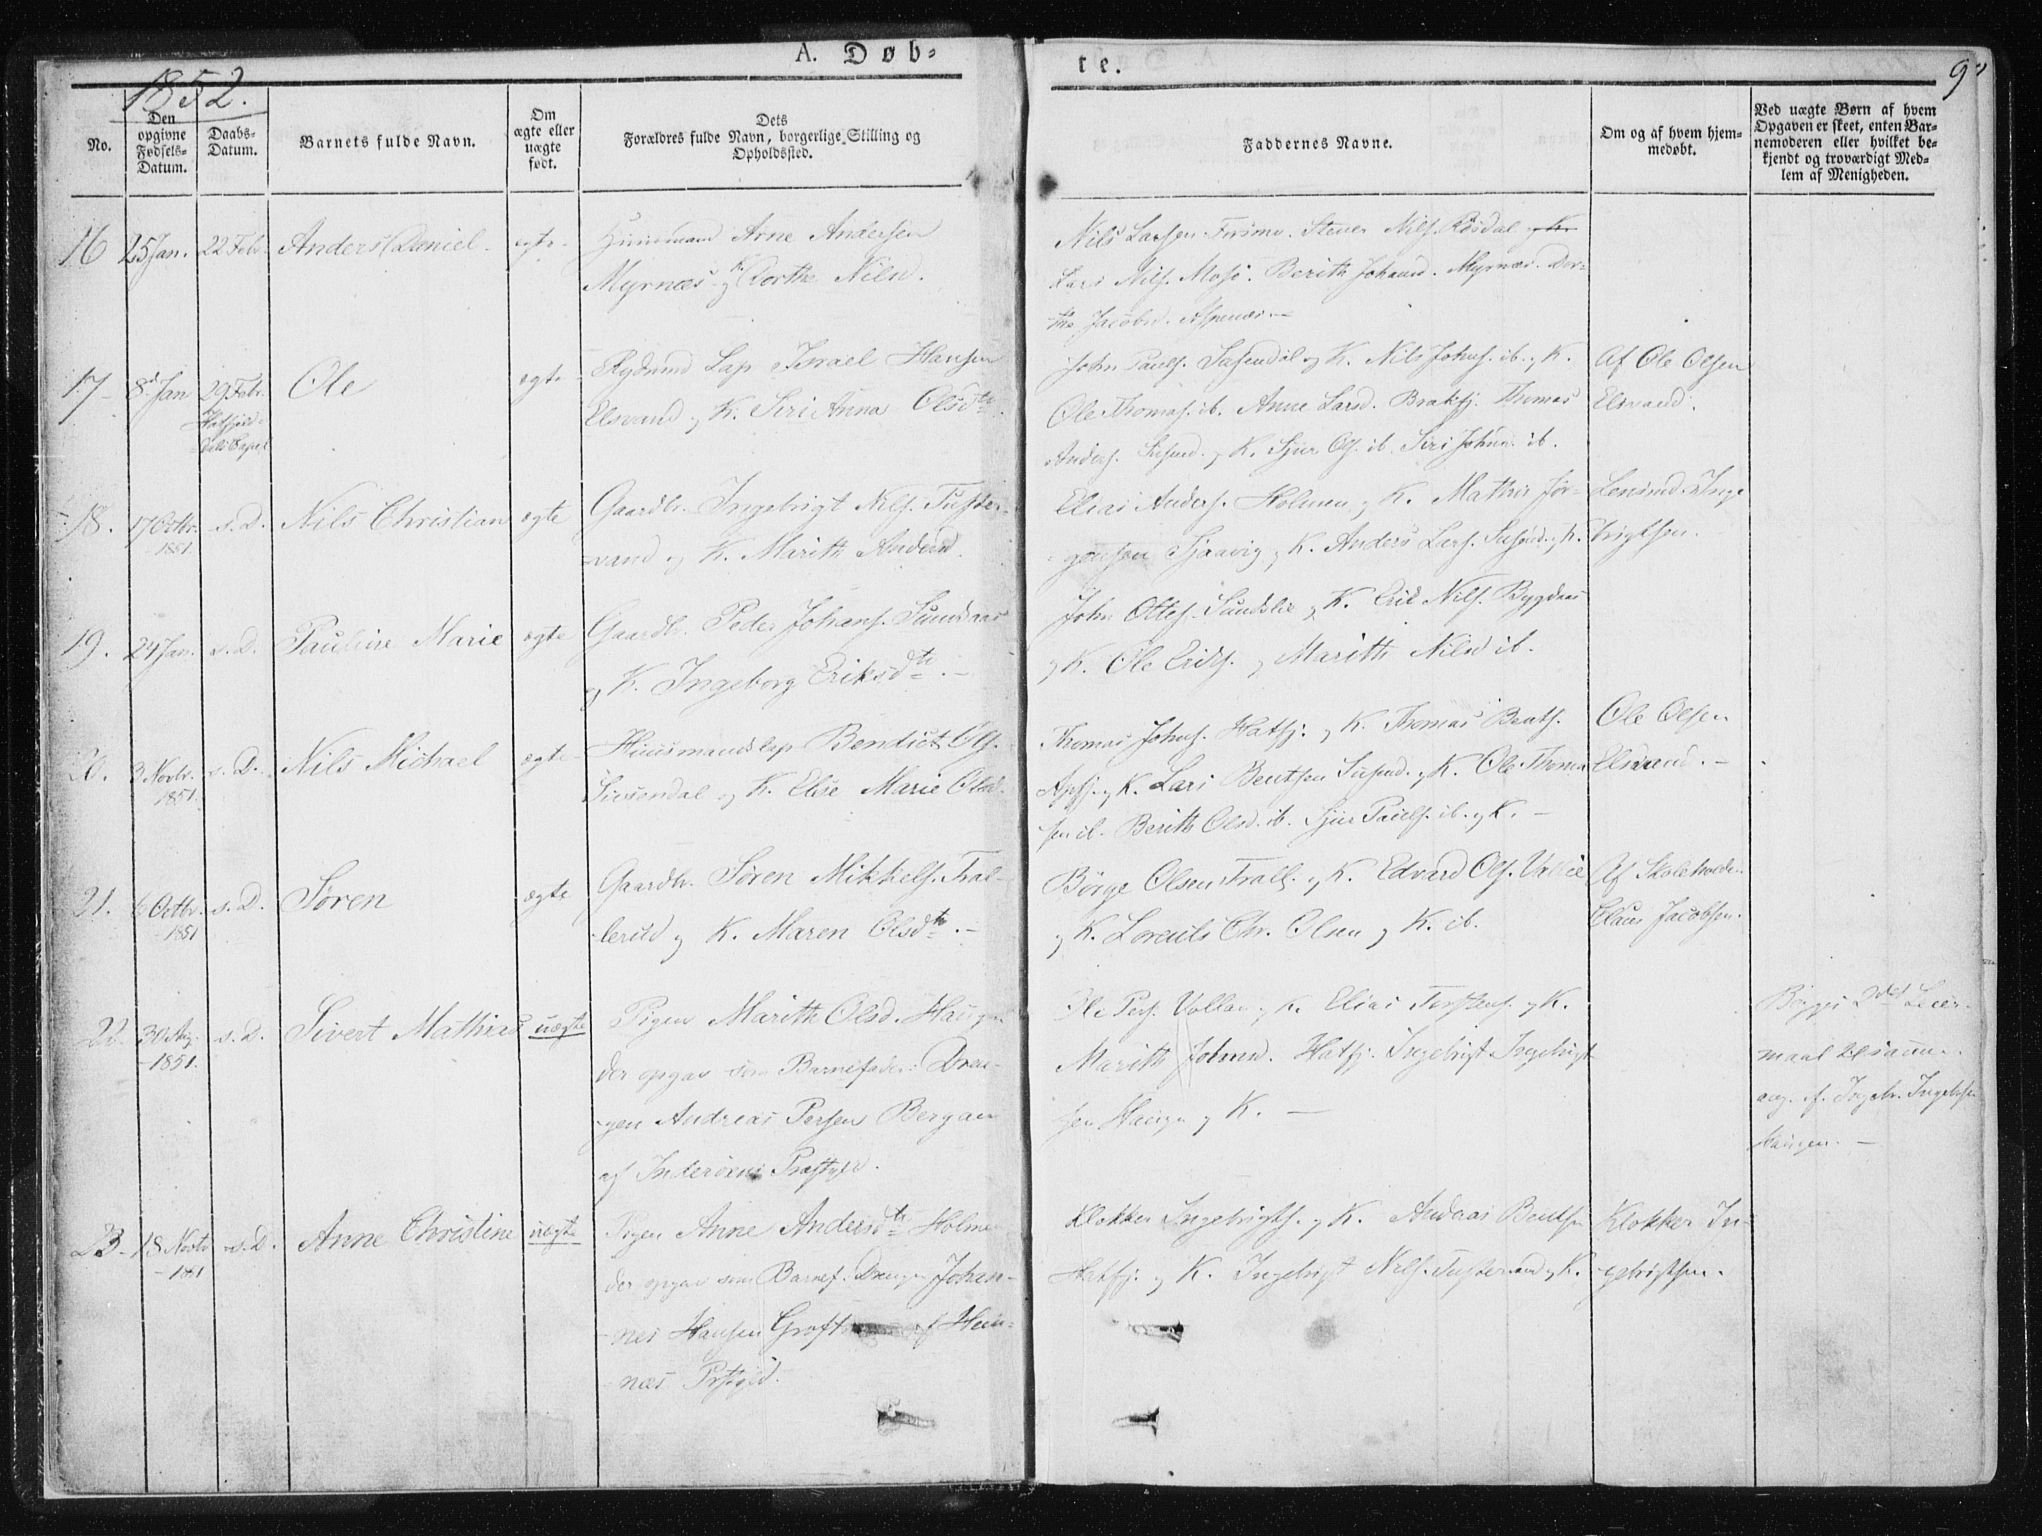 A. Døb-
te.
9
1852.
No.
Den opgivne Fødsels-Datum.
Daabs-Datum.
Barnets fulde Navn.
Om ægte eller uægte født.
Dets Forældres fulde Navn, borgerlige Stilling og Opholdssted.
Faddernes Navne.
Om og af hvem hjem-medøbt.
Ved uægte Børn af hvem Opgaven er skeet, enten Bar-nemoderen eller hvilket be-kjendt og troværdigt Med-lem af Menigheden.
16 25 Jan. 22 Febr. Anders Daniel. egte. Huusmand Arne Andersen
Myrnæs og K. Dorthe Nilsd.
Nils Larsen Steuer Nils. Røsdal
Lars Nils. Mosø. Berith Johansd. Myrnæs. Dor-
the Jacobsd. Aspenæs.
17 8d Jan 29 Febr. Hatfjeld-Dals Capel Ole egte Rydnmd Lap Israel Hansen
Elsvand og K. Siri Anna Olsdtr.
John Pauls. Susendal og K. Nils Johns. ib. og K.
Ole Thomas. ib. Anne Larsd. Brakfj. Thomas
Anders. Susend. og K. Sjur Ols. ib. Siri Johnsd. ib.
Af Ole Olsen
Elsvand.
18. 17 Octbr. 1851. s. D. Nils Christian egte Gaardbr. Ingebrigt Nils. Tuster-
vand og K. Marith Andersd.
Elias Anders. Holmen og K. Mathis Jør-
gensen Sjaavig og K. Anders Lars. Susend. og K.
Lensmd. Inge
brigtsen.
19. 24 Jan. s. D. Pauline Marie egte Gaardbr. Peder Johans. Sundaas
og K. Ingeborg Eriksdtr.
John Ottes. Sundslie og K. Erik Nils. Bygdaas
og K. Ole Eriks. og Marith Nilsd ib.
20. 3 Novbr. 1851. s. D. Nils Michael egte Huusmandslap Bendict Ols.
Susendal og K. Else Marie Olsd.
Thomas Johns. Hatfj. og K. Thomas Bents.
og K. Lars Bentsen Susend. og K. Ole Thoma
sen ib. Berith Olsd. ib. Sjur Pauls. ib. og K.
Ole Olsen
Elsvand.
21. 6 Octbr. 1851 s. D. Søren egte Gaardbr. Søren Mikkels. Tral-
lerud og K. Maren Olsdtr.
Børge Olsen Trall. og K. Edvard Ols.
og K. Lorents Chr. Olsen og K. ib.
Af Skoleholder
Claus Jacobsen.
22. 30 Aug. 1851. s. D. Sivert Mathias uægte Pigen Marith Olsd. Haugen
der opgav som Barnefader: Dren-
gen Andreas Persen Bergan
af Inderøens Præstgjeld.
Ole Pers. Vollan og K. Elias Torstens. og K.
Marith Johnsd. Hatfj. Ingebrigt Ingebrigt
sen Haugen og K.
Begges 2det Leier-
maal
ang. af Ingebr. Ingebrigtsen
Haugen.
23. 18 Novbr 1851 s. D. Anne Christine uægte Pigen Anne Andersdtr. Holmen
der opgav som Barnef. Drengen Johan-
nes Hansen af Hem-
næs Prstgjld.
Klokker Ingebrigts. og K. Andreas Bentsen
Hatfj. og K. Ingebrigt Nils. Tustervand og K.
Klokker In-
gebrigtsen.